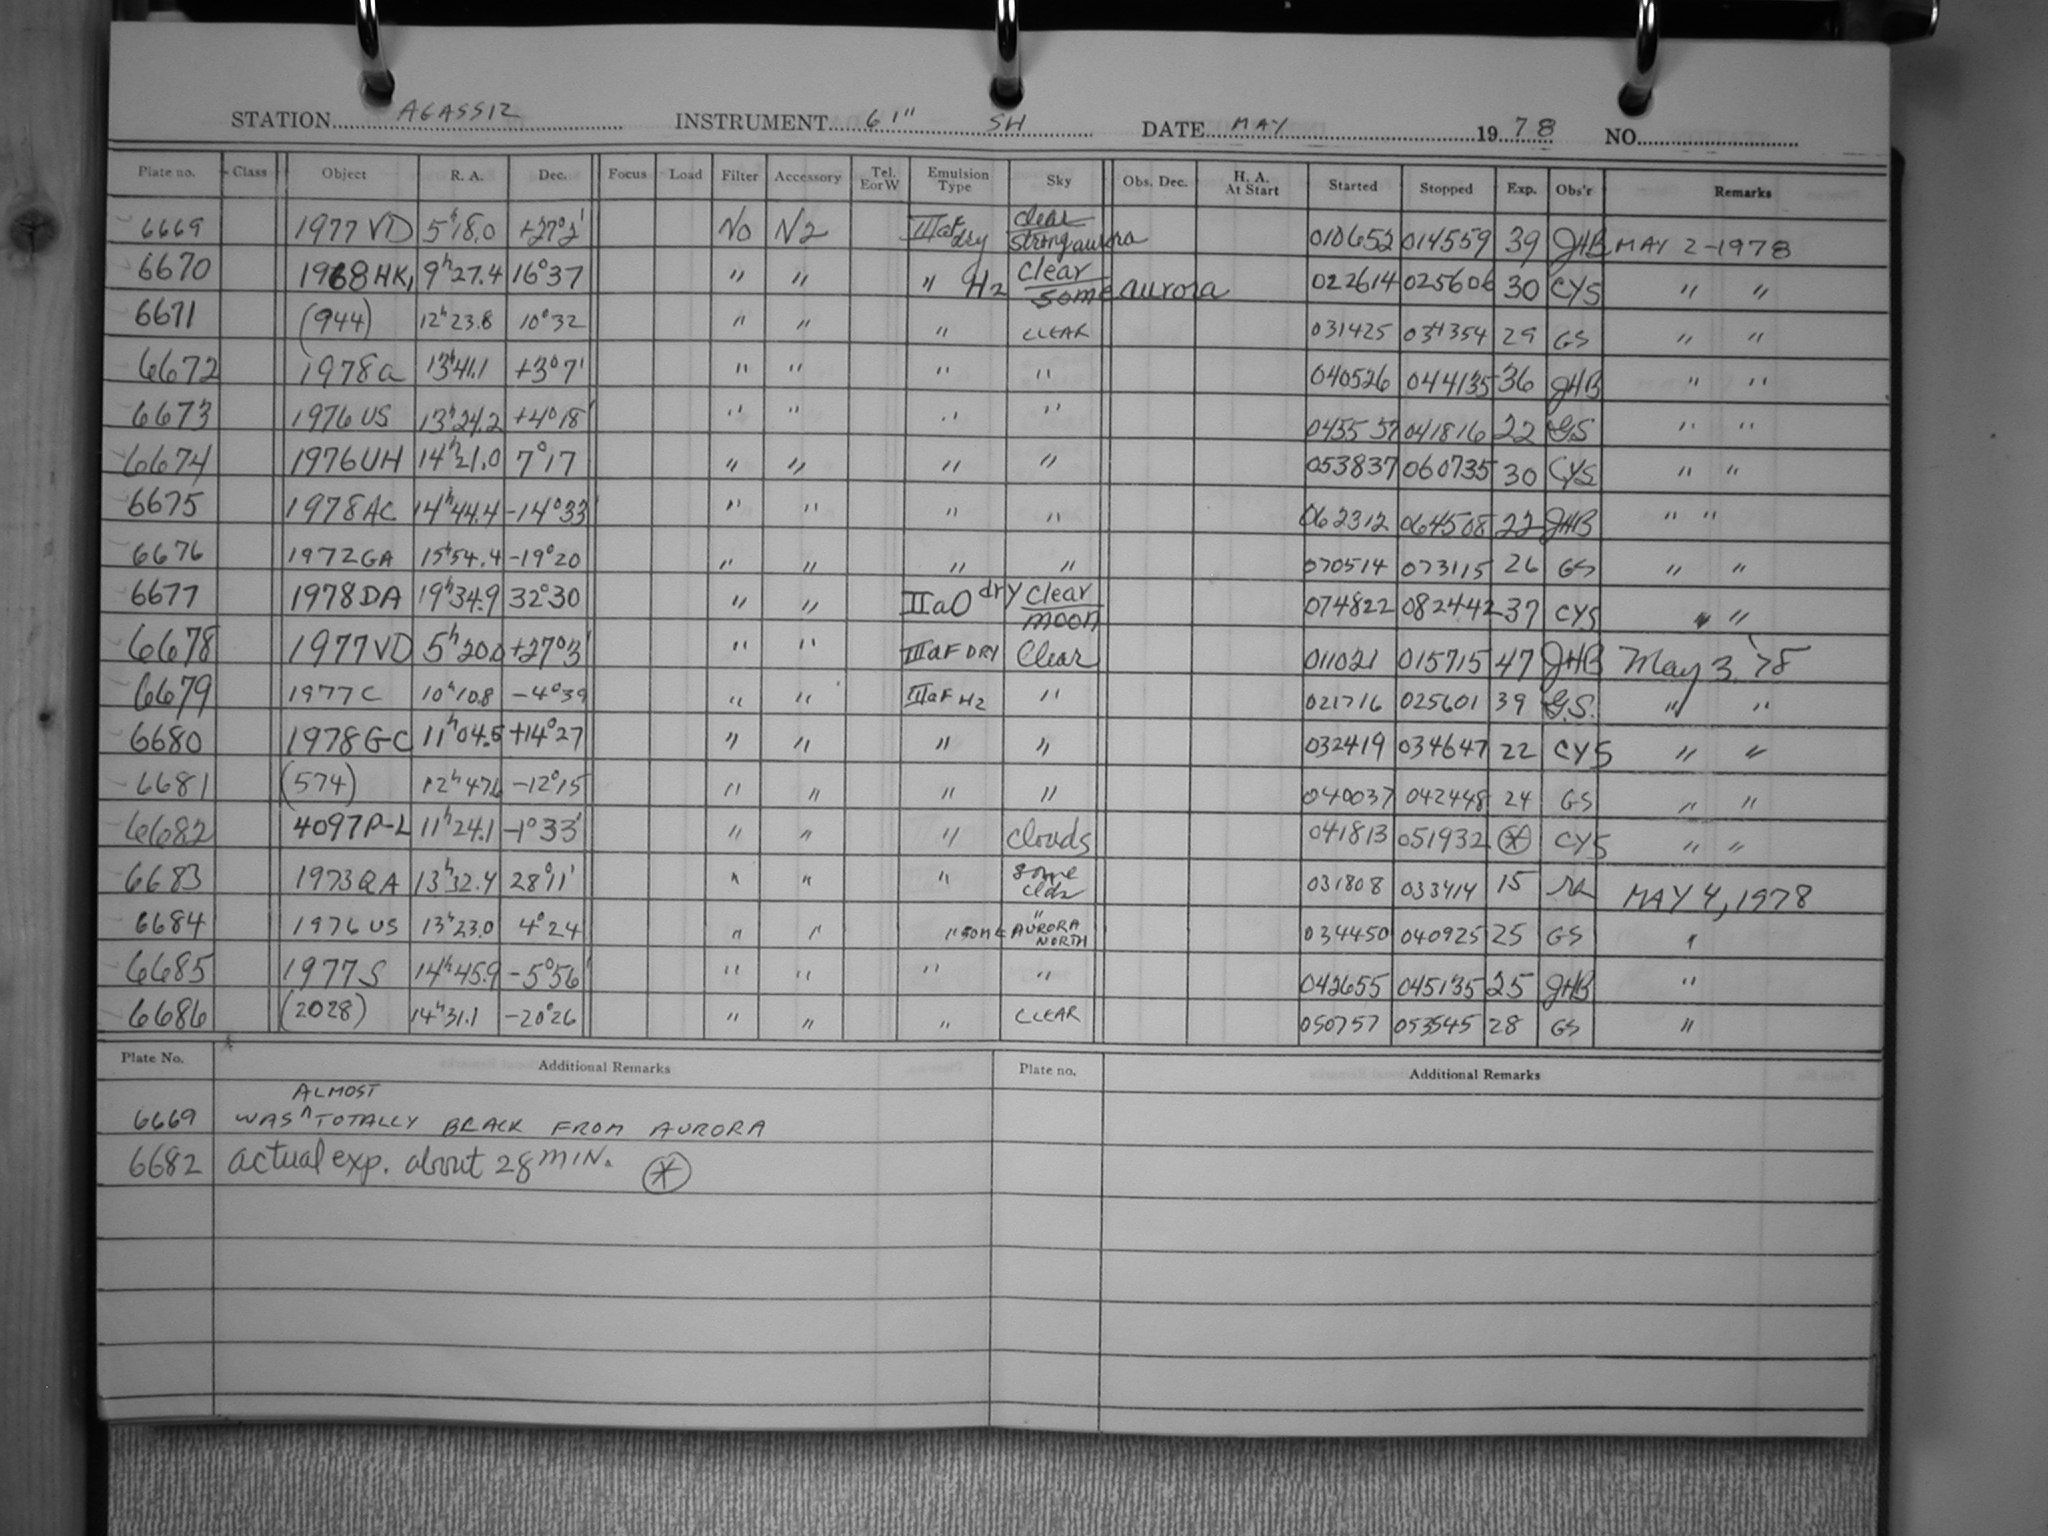 STATION AGASSIZ INSTRUMENT 61" SH DATE MAY 1978 NO.
Plate no. Class Object R. A. Dec. Focus Load Filter Accessory Tel. E or W Emulsion Type Sky Obs. Dec. H. A. At Start Started Stopped Exp. Obs'r Remarks
6669 1977 VD 5h18.0 +27°2' No N2 IIIaF dry clear strong aurora 010652 014559 39 JHB MAY 2-1978
6670 1968 HK1 9h27.4 16°37 " " " H2 clear some aurora 022614 025606 30 CYS " "
6671 (944) 12h23.8 10°32 " " " CLEAR 031425 034354 29 GS " "
6672 1978a 13h41.1 +3°7' " " " " 040526 044135 36 JHB " "
6673 1976 US 13h24.2 +4°18' " " " " 045557 041816 22 GS " "
6674 1976 UH 14h21.0 7°17 " " " " 053837 060735 30 CYS " "
6675 1978 AC 14h44.4 -14°33' " " " " 062312 064508 22 JHB " "
6676 1972 GA 15h54.4 -19°20 " " " " 070514 073115 26 GS " "
6677 1978 DA 19h34.9 32°30 " " IIaO dry clear moon 074822 082442 37 CYS " "
6678 1977 VD 5h20.0 +27°3' " " IIIaF DRY Clear 011021 015715 47 JHB May 3, '78
6679 1977 C 10h10.8 -4°39 " " IIIaF H2 " 021716 025601 39 G.S. " "
6680 1978 GC 11h04.5 +14°27 " " " " 032419 034647 22 CYS " "
6681 (574) 12h47.6 -12°15 " " " " 040037 042448 24 GS " "
6682 4097 P-L 11h24.1 -1°33' " " " clouds 041813 051932 (*) CYS " "
6683 1973 QA 13h32.4 28°11' " " " some clds 031808 033414 15 MAY 4, 1978
6684 1976 US 13h23.0 4°24 " " " SOME " AURORA NORTH 034450 040925 25 GS "
6685 1977 S 14h45.9 -5°56' " " " " 042655 045135 25 JHB "
6686 (2028) 14h31.1 -20°26 " " " CLEAR 050757 053545 28 GS "
Plate No. Additional Remarks Plate no. Additional Remarks
6669 WAS ^ALMOST TOTALLY BLACK FROM AURORA
6682 actual exp. about 28 MIN. (*)